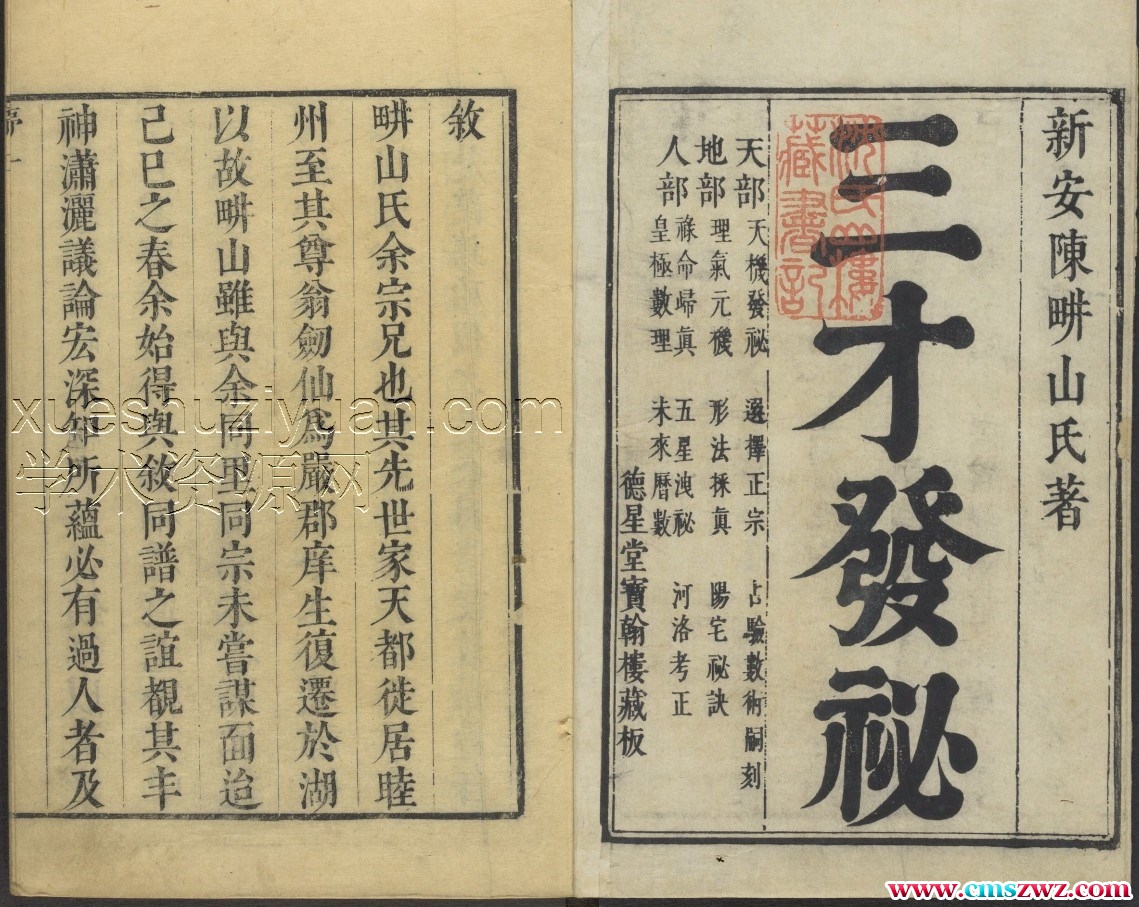 新安陳畊山氏著
三才發祕
天部 天機發祕 選擇正宗 占驗數術嗣刻
地部 理氣元機 形法探真 陽宅祕訣
人部 祿命歸真 五星洩祕 河洛考正
皇極數理 未來曆數
德星堂寶翰樓藏板
藏書記
敘
畊山氏余宗兄也其先世家天都徙居睦
州至其尊翁劒仙為嚴郡庠生復遷於湖
以故畊山雖與余同里同宗未嘗謀面迨
己巳之春余始得與敘同譜之誼覩其丰
神瀟灑議論宏深知所蘊必有過人者及
xueshuziyuan.com
学术资源网
www.cmszwz.com